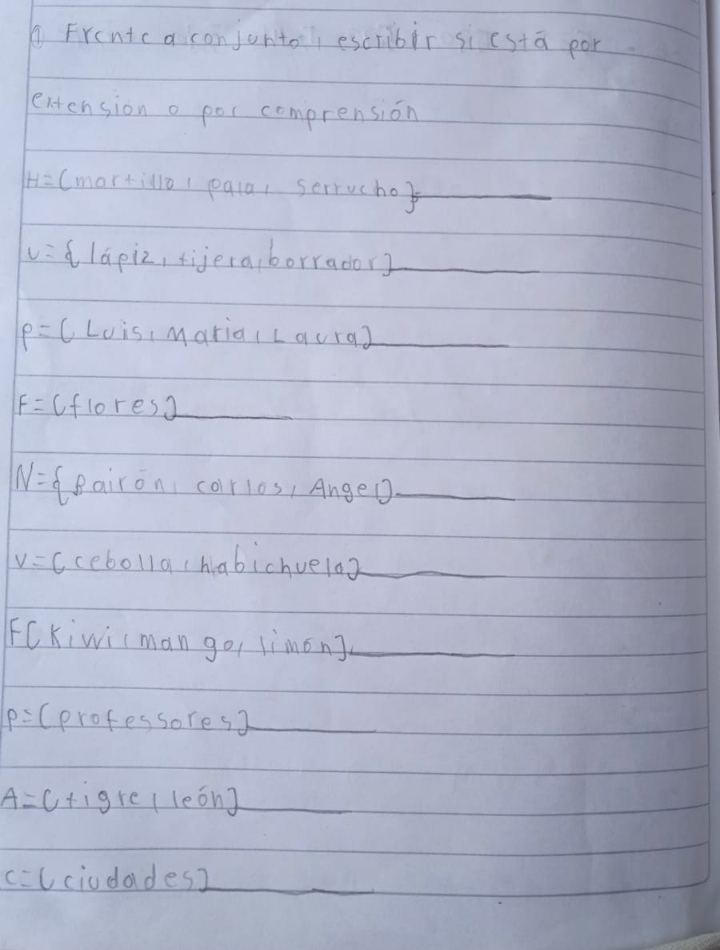 ① Frente a conjunto, escribir si está por
extensión o por comprensión
H={martillo, pala, serrucho}
U={lápiz, tijera, borrador}
P={Luis, Maria, Laura}
F={flores}
N={Bairón, carlos, Angel}
V={cebolla, habichuela}
F{Kiwi, mango, limón}
P={professores}
A={tigre, león}
C={ciudades}